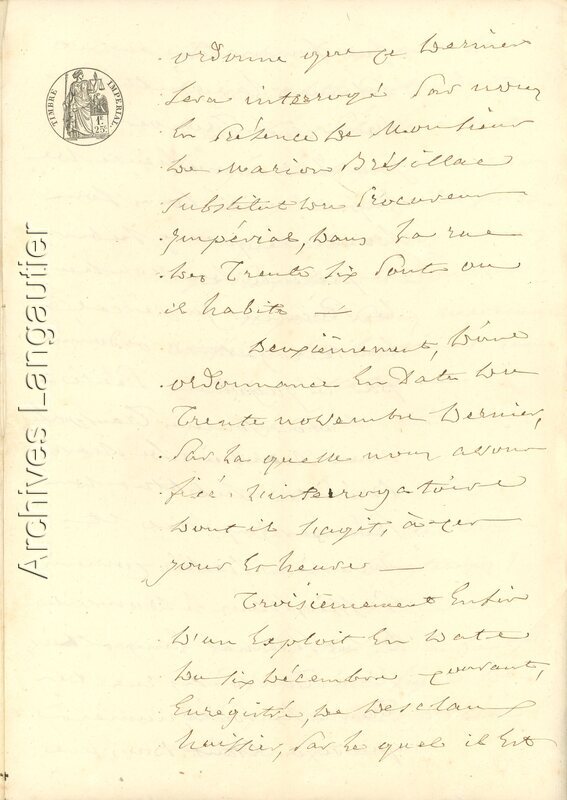 TIMBRE IMPÉRIAL
1F
25C
Archives Langautier
ordonne que ce dernier
sera interrogé par nous
En Présence De Monsieur
De Marion Brésillac
Substitut du Procureur
Impérial, dans La rue
des Trente six Ponts ou
il habite —
Deuxièmement, D'une
ordonnance En Date du
Trente novembre dernier,
Par La quelle nous avons
fixé L'interrogatoire
dont il s'agit, à ces
jour Et heures —
Troisièmement Enfin
D'un Exploit En date
du six Décembre courant,
Enrégistré, De Desclaux
huissier, Par Le quel il Est